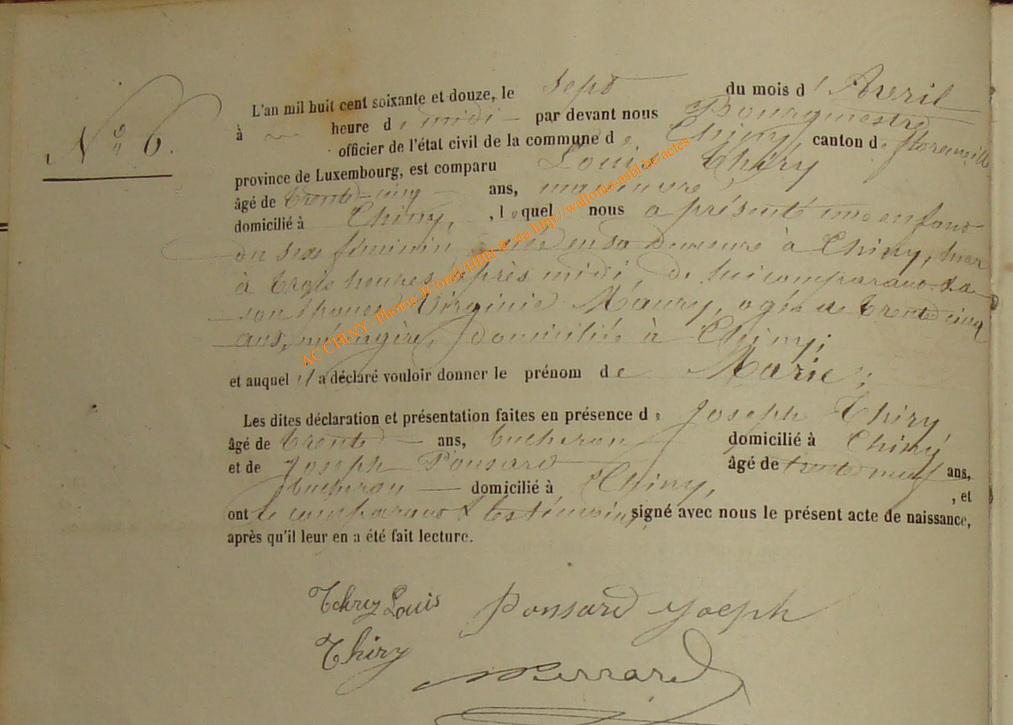 N° 6.
L'an mil huit cent soixante et douze, le sept du mois d'Avril
à heure de midi par devant nous Bourgmestre
officier de l'état civil de la commune de Chiny canton de florenville
province de Luxembourg, est comparu Louis Thiry
âgé de trente-cinq ans, manœuvre
domicilié à Chiny, , lequel nous a présenté une enfant
du sexe féminin née en sa demeure à Chiny, hier
à trois heures après midi de lui comparant & de
son épouse Virginie Maury, agée de trente cinq
ans, ménagère, domiciliée à Chiny;
et auquel il a déclaré vouloir donner le prénom de Marie;
Les dites déclaration et présentation faites en présence de Joseph Thiry
âgé de trente ans, bucheron domicilié à Chiny
et de Joseph Ponsard âgé de trente neuf ans,
bucheron domicilié à Chiny, , et
ont le comparant & les témoins, signé avec nous le présent acte de naissance,
après qu'il leur en a été fait lecture.
Thiry Louis Ponsard Joseph
Thiry
Perrard